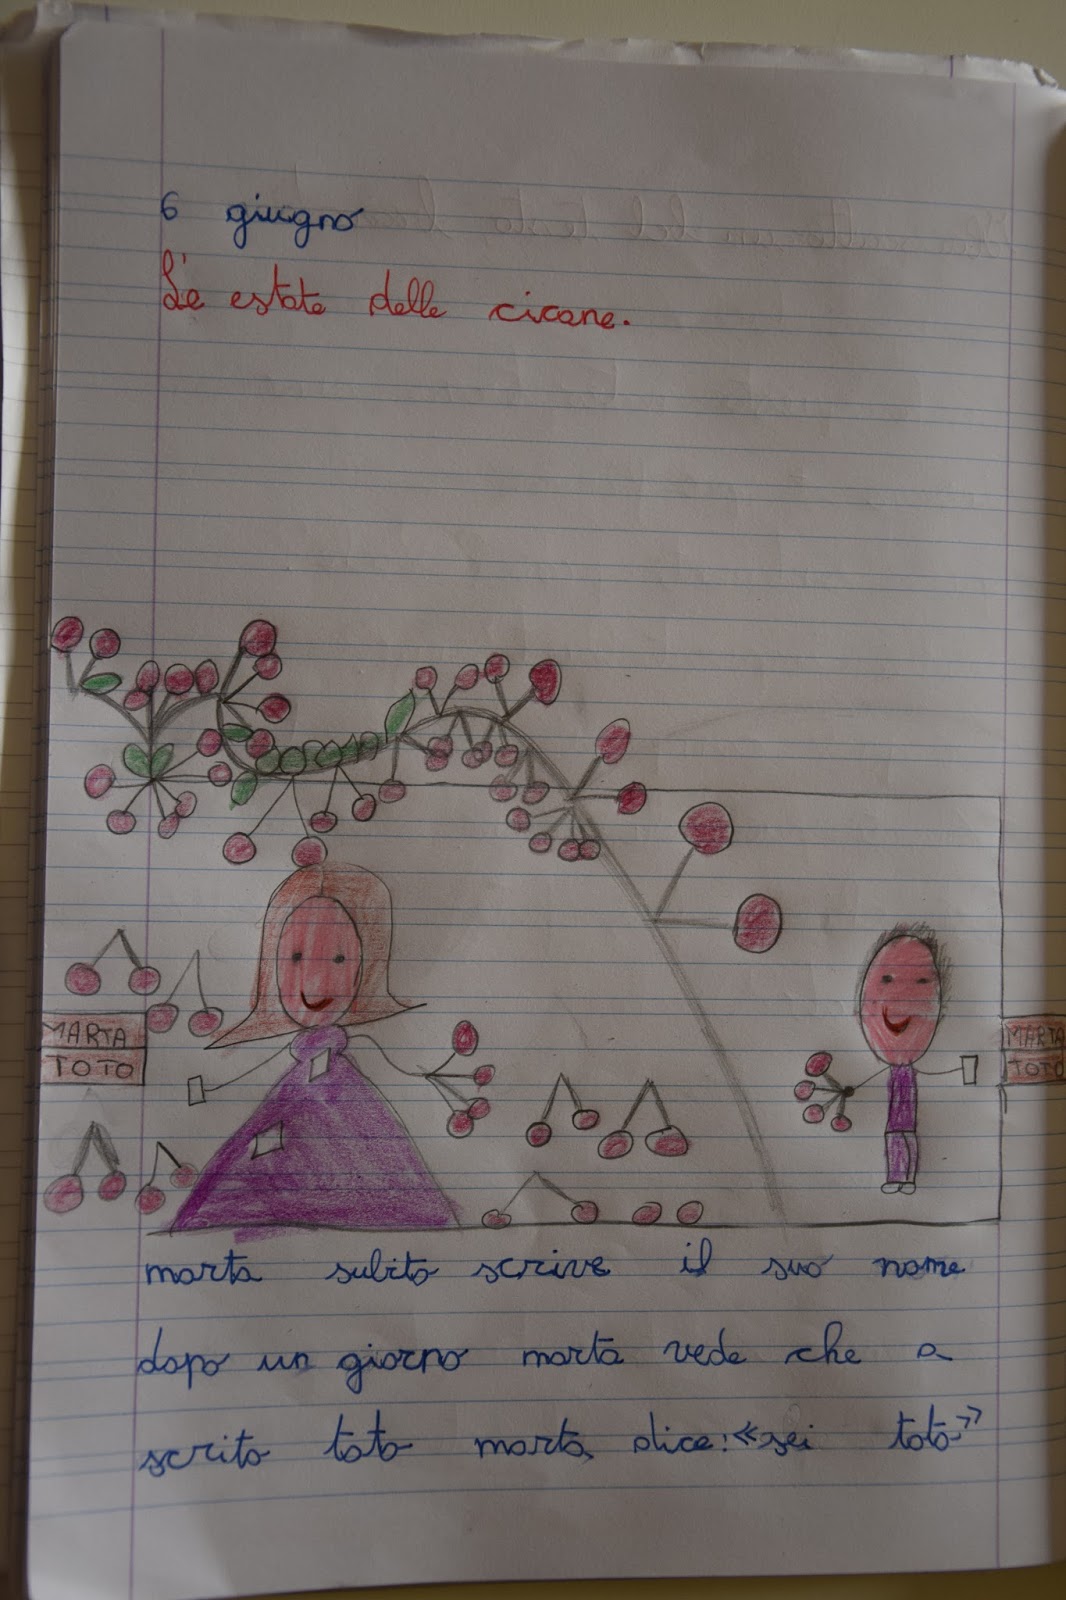 6 giugno
L'e estate delle cicane.
MARTA
TOTO
MARTA
TOTO
marta subito scrive il suo nome
dopo un giorno marta vede che a
scrito toto marta dice: «sei toto»